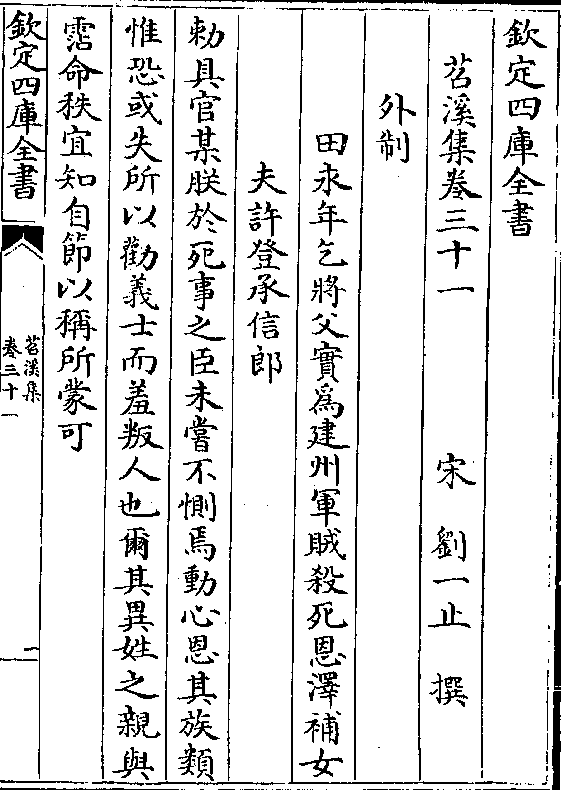 欽定四庫全書
苕溪集卷三十一 宋 劉一止 撰
外制
田永年乞將父實爲建州軍賊殺死恩澤補女
夫許登承信郎
勅具官某朕於死事之臣未嘗不惻焉動心恩其族類
惟恐或失所以勸義士而羞叛人也爾其異姓之親與
霑命秩宜知自節以稱所蒙可
欽定四庫全書
苕溪集
卷三十一
一